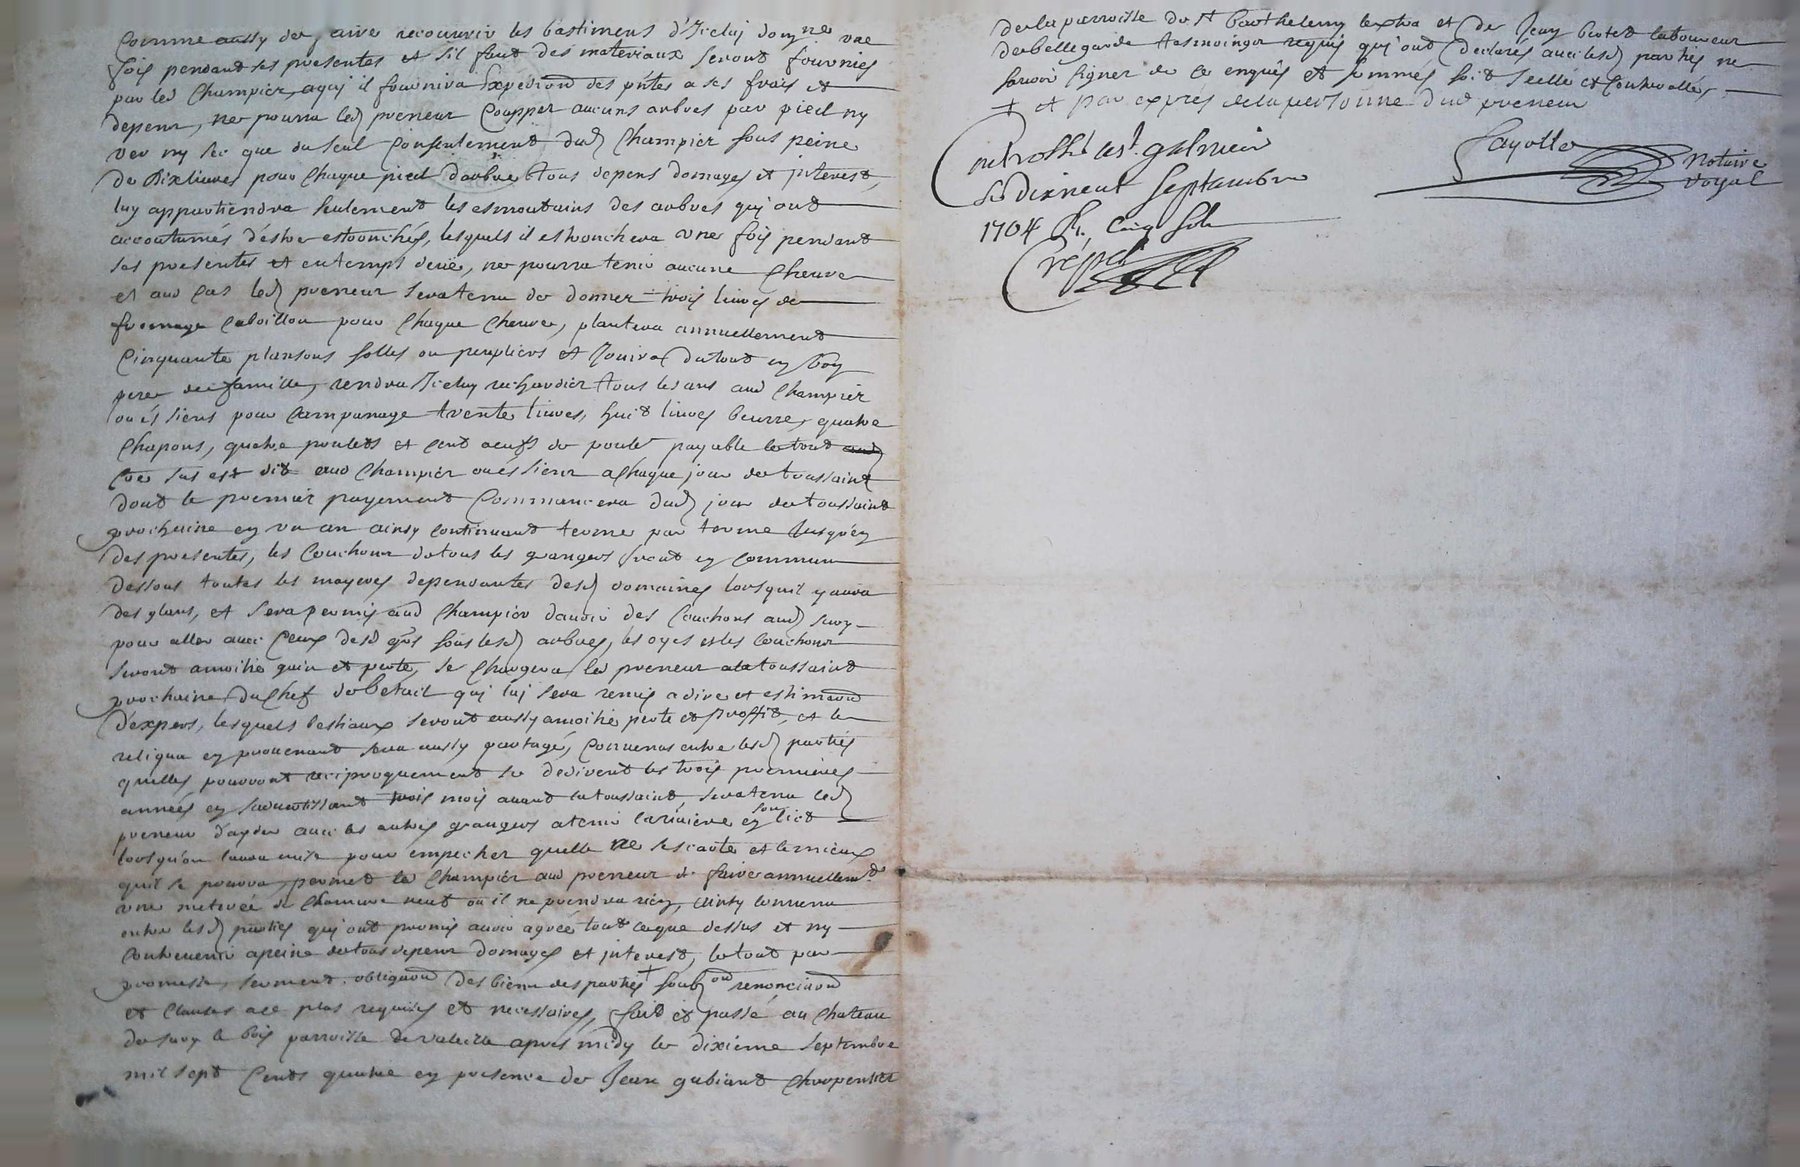 Comme aussy de faire recouvrir les bastimens d'Iceluy domne une
fois pendant ses presentes et s'il faut des materiaux seront fournies
par led Champier, aquj il fournira Expedition des pntes a ses frais et
depens, ne pourra led preneur Coupper aucuns arbres par pied ny
ver ny sec que du seul Consentement dud Champier sous peine
de dix livres pour chaque pied d'arbre & tous depens domages et jnterest,
luy appartiendra seulement les esmoutains des arbres quj ont
accoutumés d'estre estronchés, lesquels il estronchera une fois pendant
ses presentes et en temps deüe, ne pourra tenir aucune Cheure
et aud cas led preneur sera tenu de donner trois livres de
fromage Caboillon pour chaque cheure, plantera annuellement
Cinquante plansons solles ou peupliers et Jouira du tout en bon
pere de famille, rendra Iceluy aud Champier
ou és siens pour Campanage trente livres, huit livres beurre, quatre
Chapons, quatre poulets et cent oeufs de poule payable le tout
Comme sus est dit aud Champier ou és siens a chaque jour de toussaint
dont le premier payement Commancera dud jour de toussaint
prochaine en un an ainsy continuant terme par terme jusqu'en
des presentes, les Couchons de tous les grangers jront en commun
dessous toutes les mayeres dependantes desd domaines lorsquil y aura
des glans, et sera permis aud Champier d'avoir des Couchons aud Sury
pour aller avec Ceux desd grs sous lesd arbres, les oyes et les Couchons
seront a moitié gain et perte, se Chargera led preneur a la toussaint
prochaine du Chef de betail quj luj sera remis a dire et estimaon
d'expers, lesquels bestiaux seront aussy a moitié perte et proffit, et le
reliqua en prouenant sera aussy partagé, Conuenus entre lesd parties
quelles pourront reciproquement se dédirent les trois premieres
années en s'auertissant trois mois auant la toussaint, sera tenu led
preneur d'ayder auec les autres grangers a tenir la riuiere en son lict
lorsqu'on l'aura mise pour empecher quelle ne s'escarte et le mieux
quil se pourra, permet led Champier aud preneur de faire annuellemt
une meterée de Chanure neuf ou il ne prendra rien, ainsy conuenu
entre lesd parties quj ont promis auoir agréé tout ceque dessus et ny
Contreuenir a peine de tous depens domages et jnterest, le tout par
promesse, serment, obligaon des biens des parties + soubzon renonciaon
et Clauses a ce plus requises et necessaires, fait et passé au Chateau
de Sury le bois parroisse de Valeille apres midy le dixieme Septembre
mil sept Cents quatre en presence de Jean gubiand Charpentier
de la parroisse de St Barthelemy lextra et de Jean laboureur
de bellegarde tesmoings requis quj ont declarés auec lesd parties ne
sauoir signer de ce enquis et sommés soit scellé et Controollés
+ et par expres de la personne dud preneur
Fayolle
notaire
royal
Controllé a St. galmier
le dixneuf Septambre
1704 R. Cinq sols
Crepet